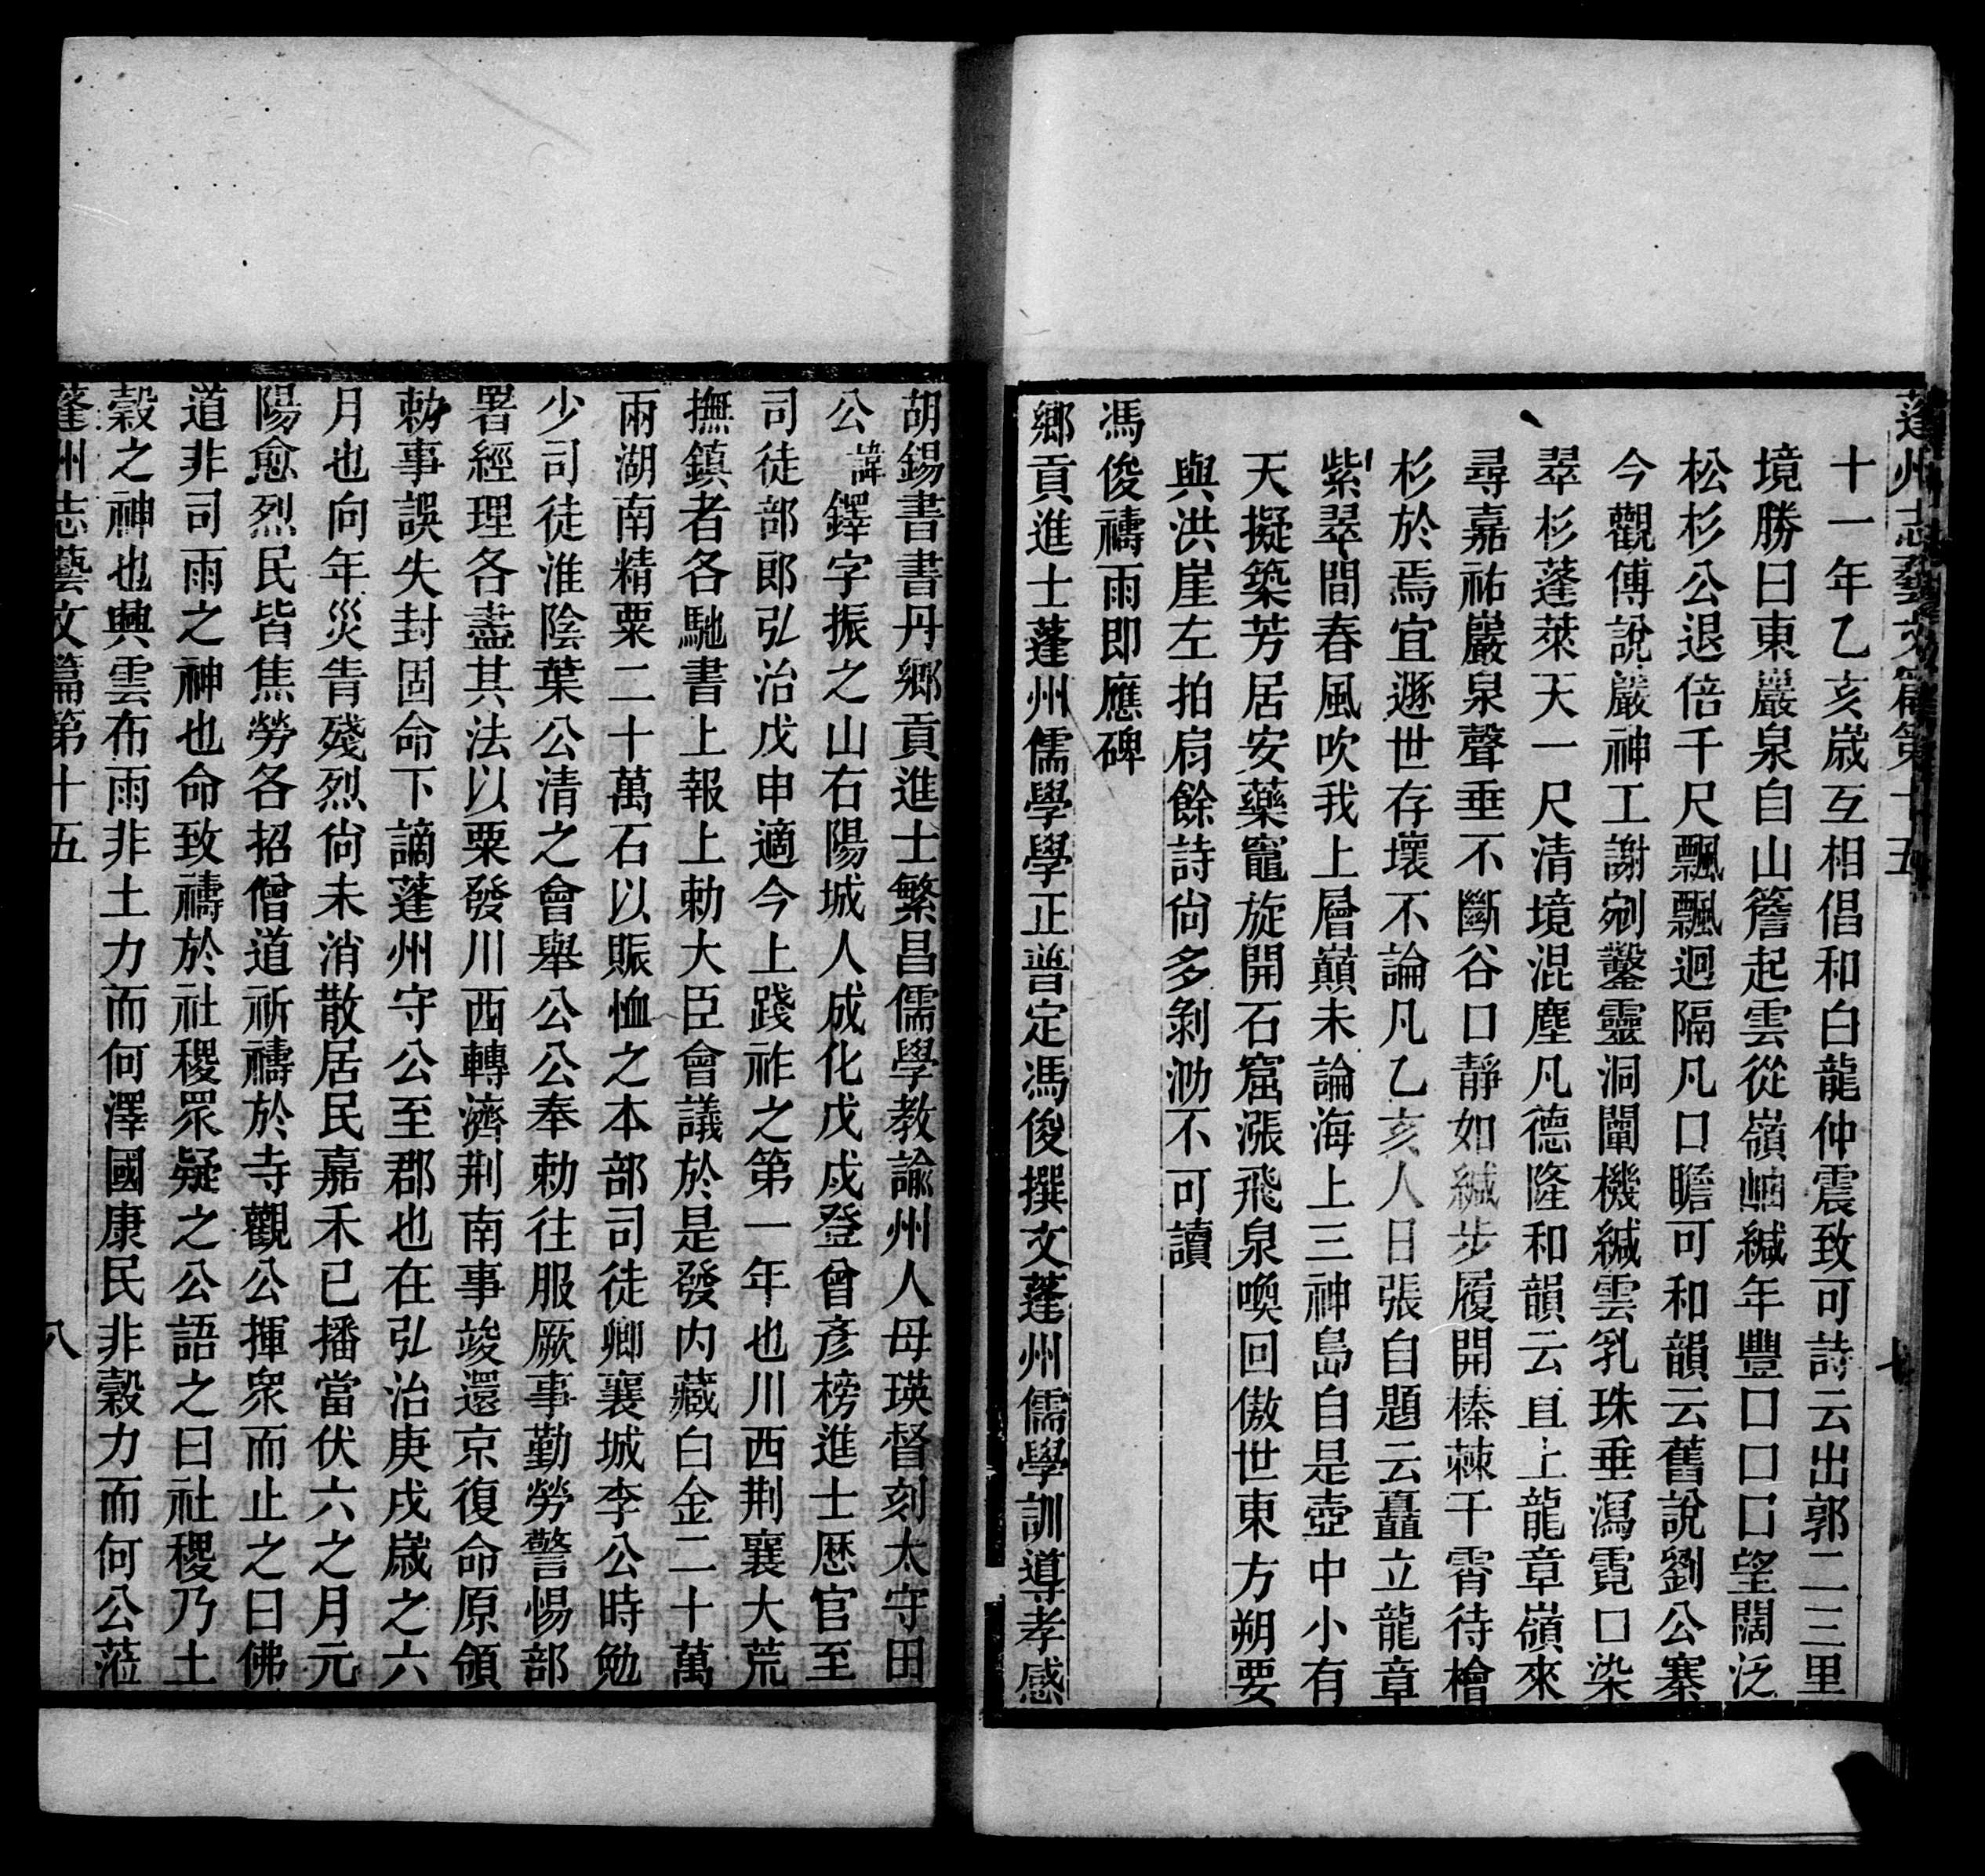 蓬州志藝文篇第十五 七
十一年乙亥歲互相倡和白龍仲震致可詩云出郭二三里
境勝曰東巖泉自山簷起雲從嶺岫緘年豐口口口望闊泛
松杉公退倍千尺飄飄迥隔凡口瞻可和韻云舊說劉公寨
今觀傅說嚴神工謝剜鑿靈洞闡機緘雲乳珠垂瀉霓口染
翠杉蓬萊天一尺清境混塵凡德隆和韻云直上龍章嶺來
尋嘉祐巖泉聲垂不斷谷口靜如緘步履開榛棘干霄待檜
杉於焉宜遯世存壞不論凡乙亥人日張自題云矗立龍章
紫翠間春風吹我上層巔未論海上三神島自是壺中小有
天擬築芳居安藥竈旋開石窟漲飛泉喚回傲世東方朔要
與洪崖左拍肩餘詩尙多剝泐不可讀
馮俊禱雨即應碑
鄉貢進士蓬州儒學學正普定馮俊撰文蓬州儒學訓導孝感
胡錫書書丹鄉貢進士繁昌儒學教諭州人母瑛督刻太守田
公諱鐸字振之山右陽城人成化戊戌登曾彥榜進士歷官至
司徒部郎弘治戊申適今上踐祚之第一年也川西荆襄大荒
撫鎮者各馳書上報上勅大臣會議於是發内藏白金二十萬
兩湖南精粟二十萬石以賑恤之本部司徒卿襄城李公時勉
少司徒淮陰葉公清之會舉公公奉勅往服厥事勤勞警惕部
署經理各盡其法以粟發川西轉濟荆南事竣還京復命原領
勅事誤失封固命下謫蓬州守公至郡也在弘治庚戌歲之六
月也向年災眚殘烈尙未消散居民嘉禾已播當伏六之月元
陽愈烈民皆焦勞各招僧道祈禱於寺觀公揮衆而止之曰佛
道非司雨之神也命致禱於社稷眾疑之公語之曰社稷乃土
穀之神也興雲布雨非土力而何澤國康民非穀力而何公蒞
蓬州志藝文篇第十五 八